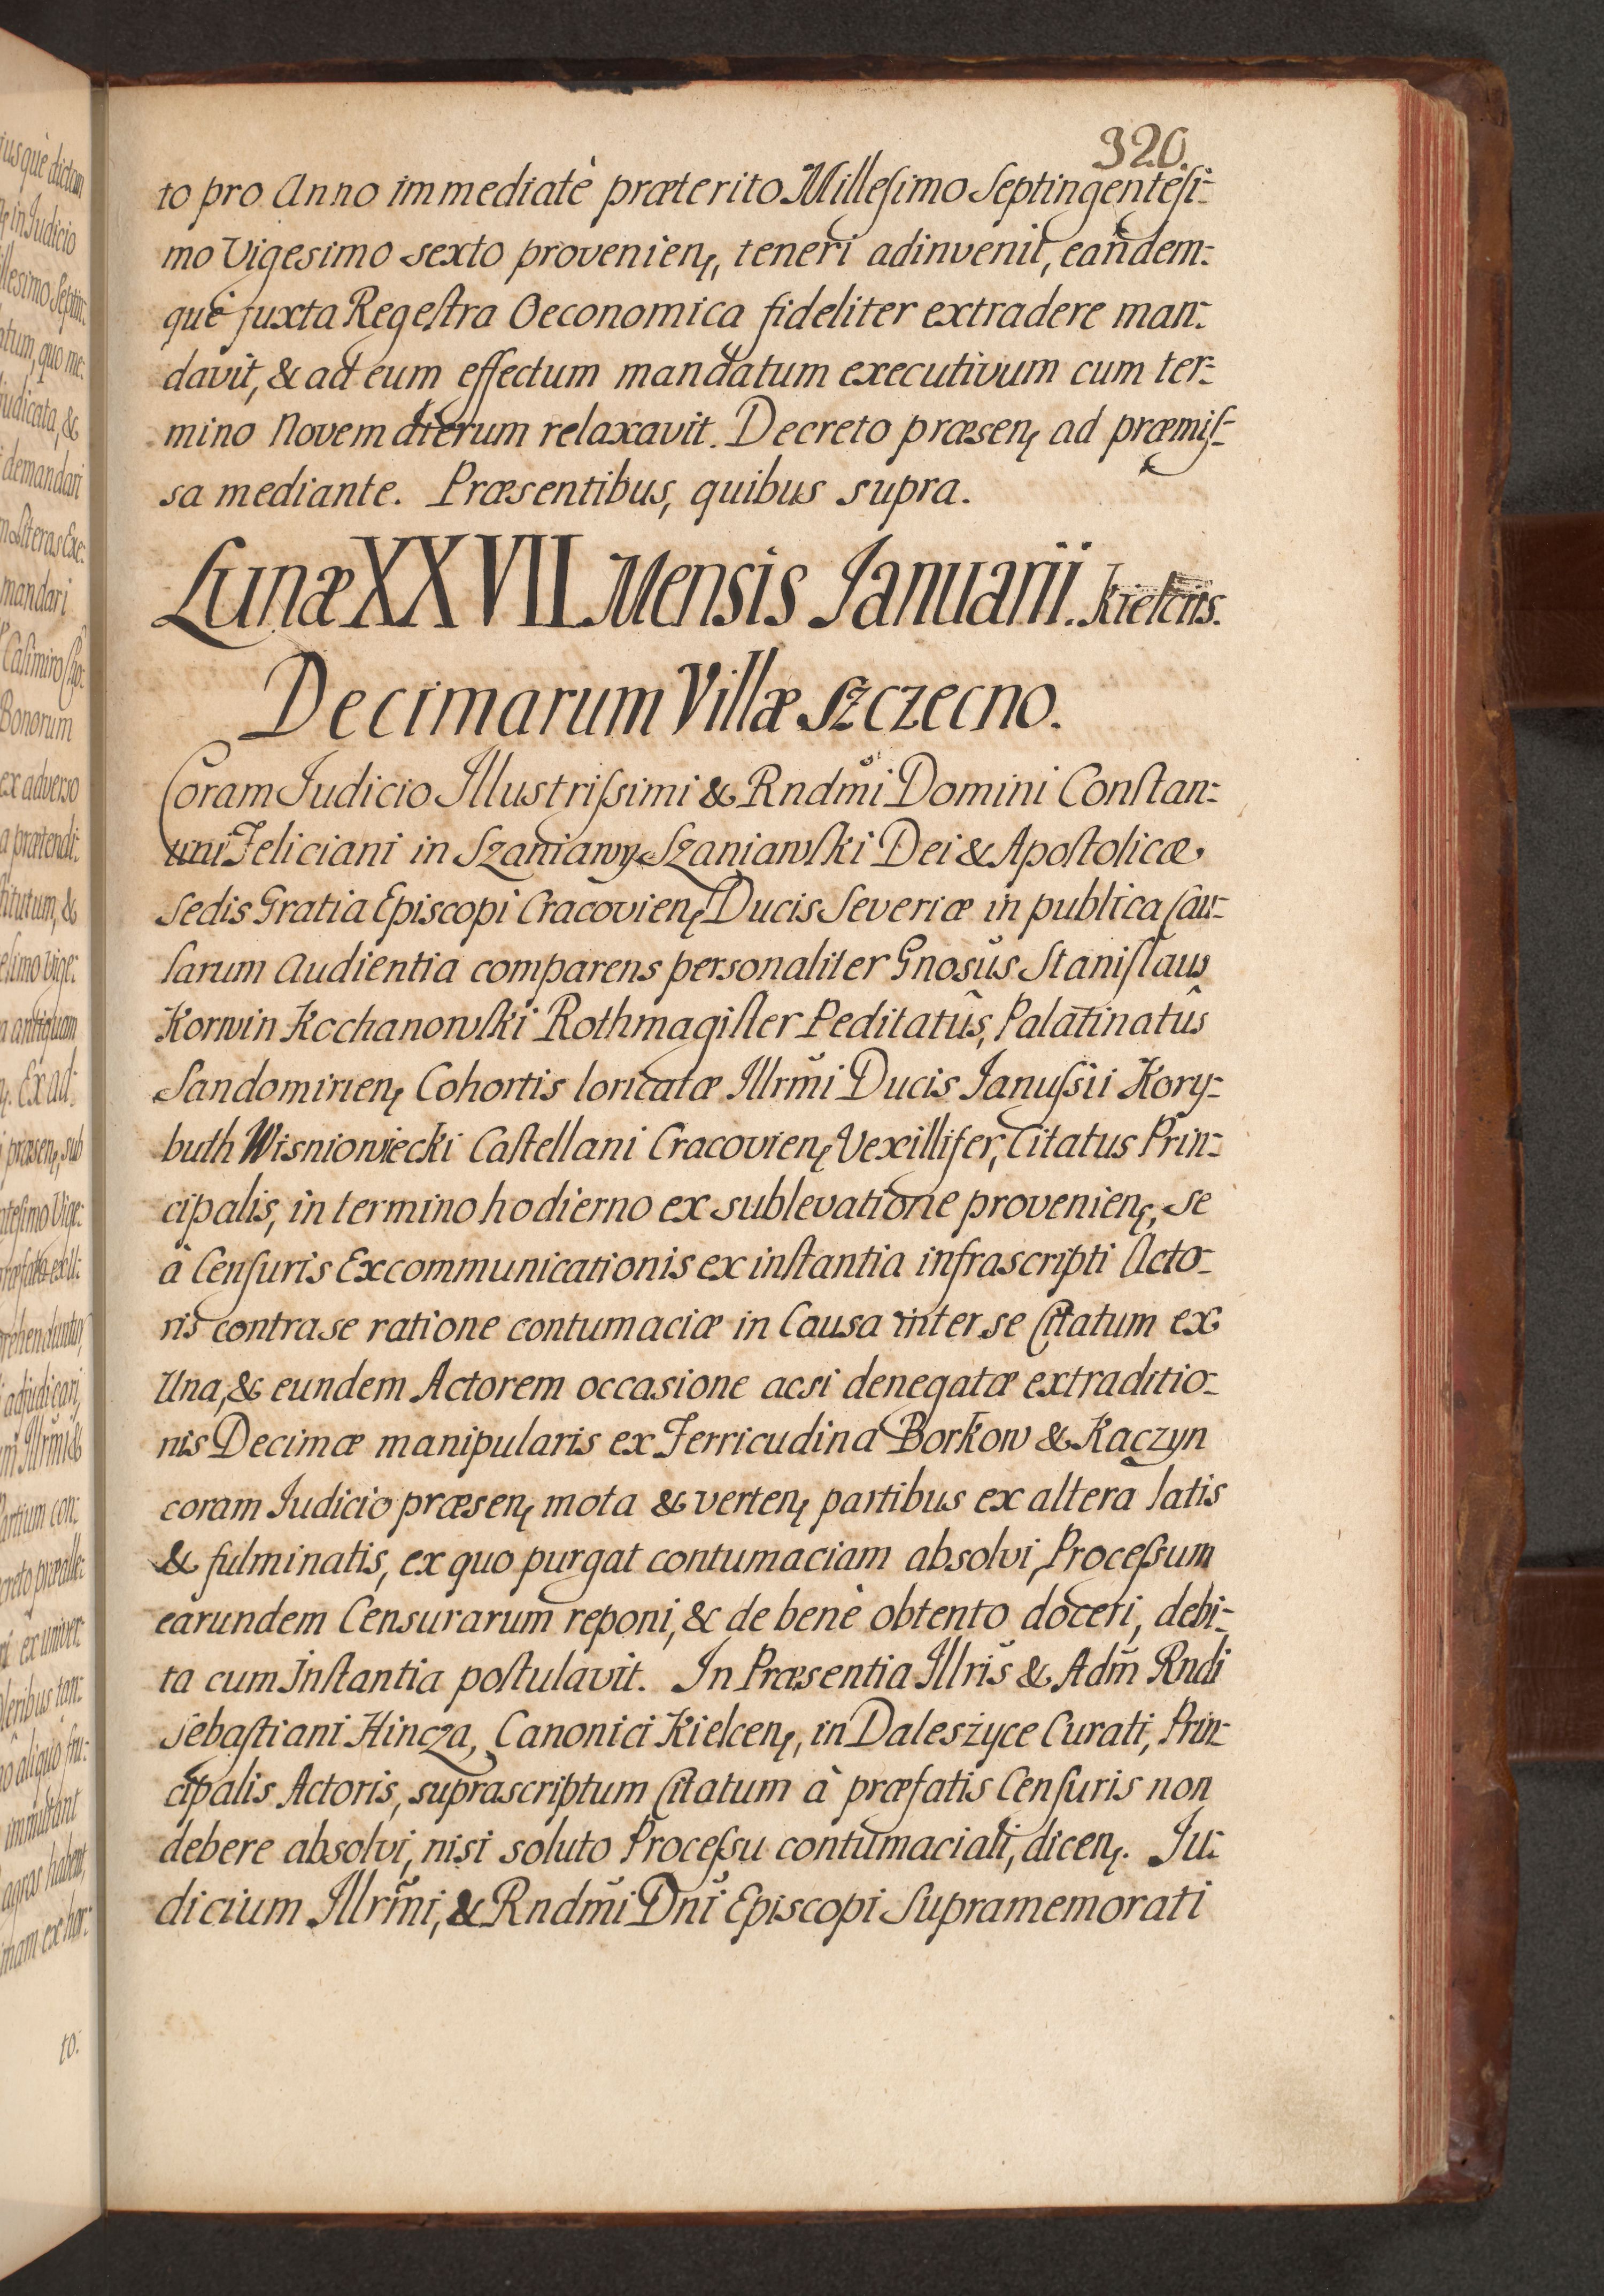 320.
to pro Anno immediatè præterito Millesimo Septingentesi-
mo Vigesimo sexto provenien, teneri adinvenit, eandem-
què juxta Regestra Oeconomica fideliter extradere man-
davit, & ad eum effectum mandatum executivum cum ter-
mino Novem dierum relaxavit. Decreto præsen ad præmis-
sa mediante. Præsentibus, quibus supra.
Lunæ XXVII Mensis Januarii. Kielciis.
Decimarum Villæ Szczecno.
Coram Judicio Illustrissimi & Rndmi Domini Constan-
tini Feliciani in Szaniawy Szaniawski Dei & Apostolicæ
Sedis Gratia Episcopi Cracovien Ducis Severiæ in publica Cau-
sarum Audientia comparens personaliter Gnosus Stanislaus
Korwin Kochanowski Rothmagister Peditatûs, Palatinatûs
Sandomirien Cohortis loricatæ Illrmi Ducis Janussii Kory-
buth Wisniowiecki Castellani Cracovien Vexillifer, Citatus Prin-
cipalis, in termino hodierno ex sublevatione provenien, se
à Censuris Excommunicationis ex instantia infrascripti Acto-
ris contra se ratione contumaciæ in Causa inter se Citatum ex
Una, & eundem Actorem occasione acsi denegatæ extraditio-
nis Decimæ manipularis ex Ferricudina Borkow & Kaczyn
coram Judicio præsen mota & verten partibus ex altera latis
& fulminatis, ex quo purgat contumaciam absolvi, Processum
earundem Censurarum reponi, & de benè obtento doceri, debi-
ta cum Instantia postulavit. In Præsentia Illris & Adm Rndi
Sebastiani Hincza, Canonici Kielcen, in Daleszyce Curati, Prin-
cipalis Actoris, suprascriptum Citatum à præfatis Censuris non
debere absolvi, nisi soluto Processu contumaciali, dicen. Ju-
dicium Illrmi, & Rndmi Dni Episcopi Supramemorati